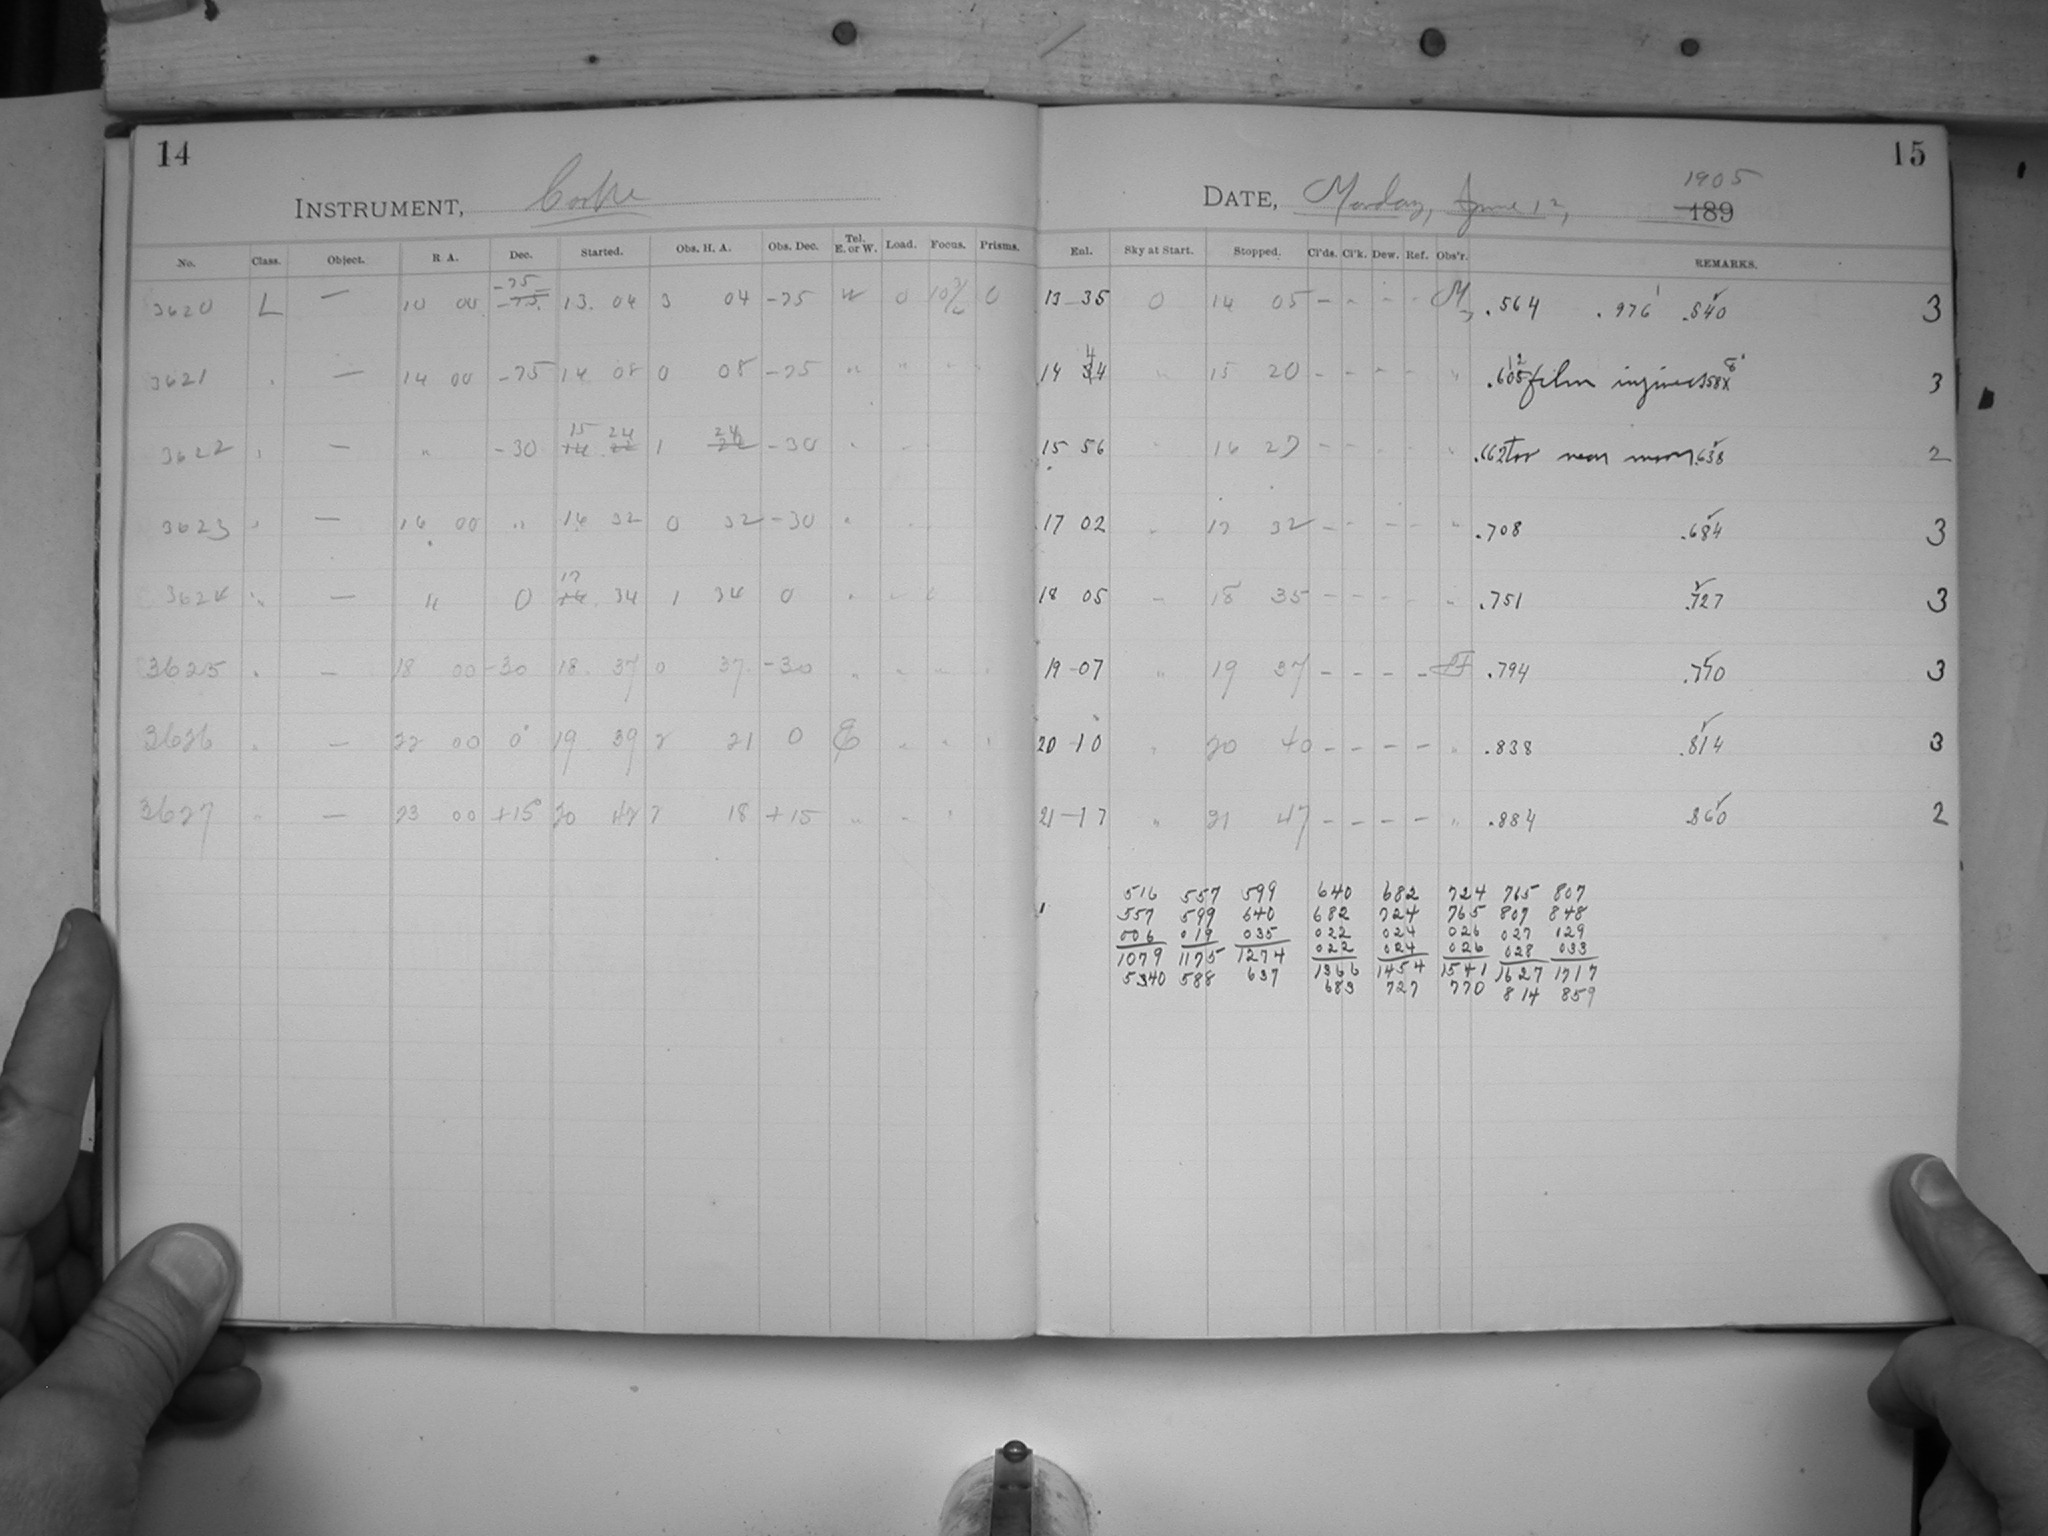 14
INSTRUMENT, Cooke
No. Class. Object. R A. Dec. Started. Obs. H. A. Obs. Dec. Tel. E. or W. Load. Focus. Prisms.
3620 L — 10 00 -75 13. 04 3 04 -75 W 0 0
3621 — 14 00 -75 14 08 0 08 -75 " "
3622 — " -30 15 24 1 24 -30
3623 — 16 00 " 16 32 0 32 -30
3624 — " 0 17 34 1 34 0
3625 — 18 00 -30 18. 37 0 37. -30
3626 — 22 00 0 19 39 2 21 0 E
3627 — 23 00 +15 20 42 2 18 +15
15
DATE, Monday, June 12, 1905
189
Exl. Sky at Start. Stopped. Cl'ds. Cl'k. Dew. Ref. Obs'r. REMARKS.
13 35 0 14 05 - - - - M .564 .976 .540 3
14 44 " 15 20 - - - - " film injured 3
15 56 16 27 - - - - " near moon .638 2
17 02 17 32 - - - - " .708 .684 3
18 05 18 35 - - - - " .751 .727 3
19-07 " 19 37 - - - - .794 .770 3
20-10 " 20 40 - - - - " .838 .814 3
21-17 " 21 47 - - - - " .884 .860 2
516 557 599 640 682 724 765 807
557 599 640 682 724 765 807 848
006 019 035 022 024 026 027 029
022 024 026 028 033
1079 1175 1274 1366 1454 1541 1627 1717
5340 588 637 683 727 770 814 859